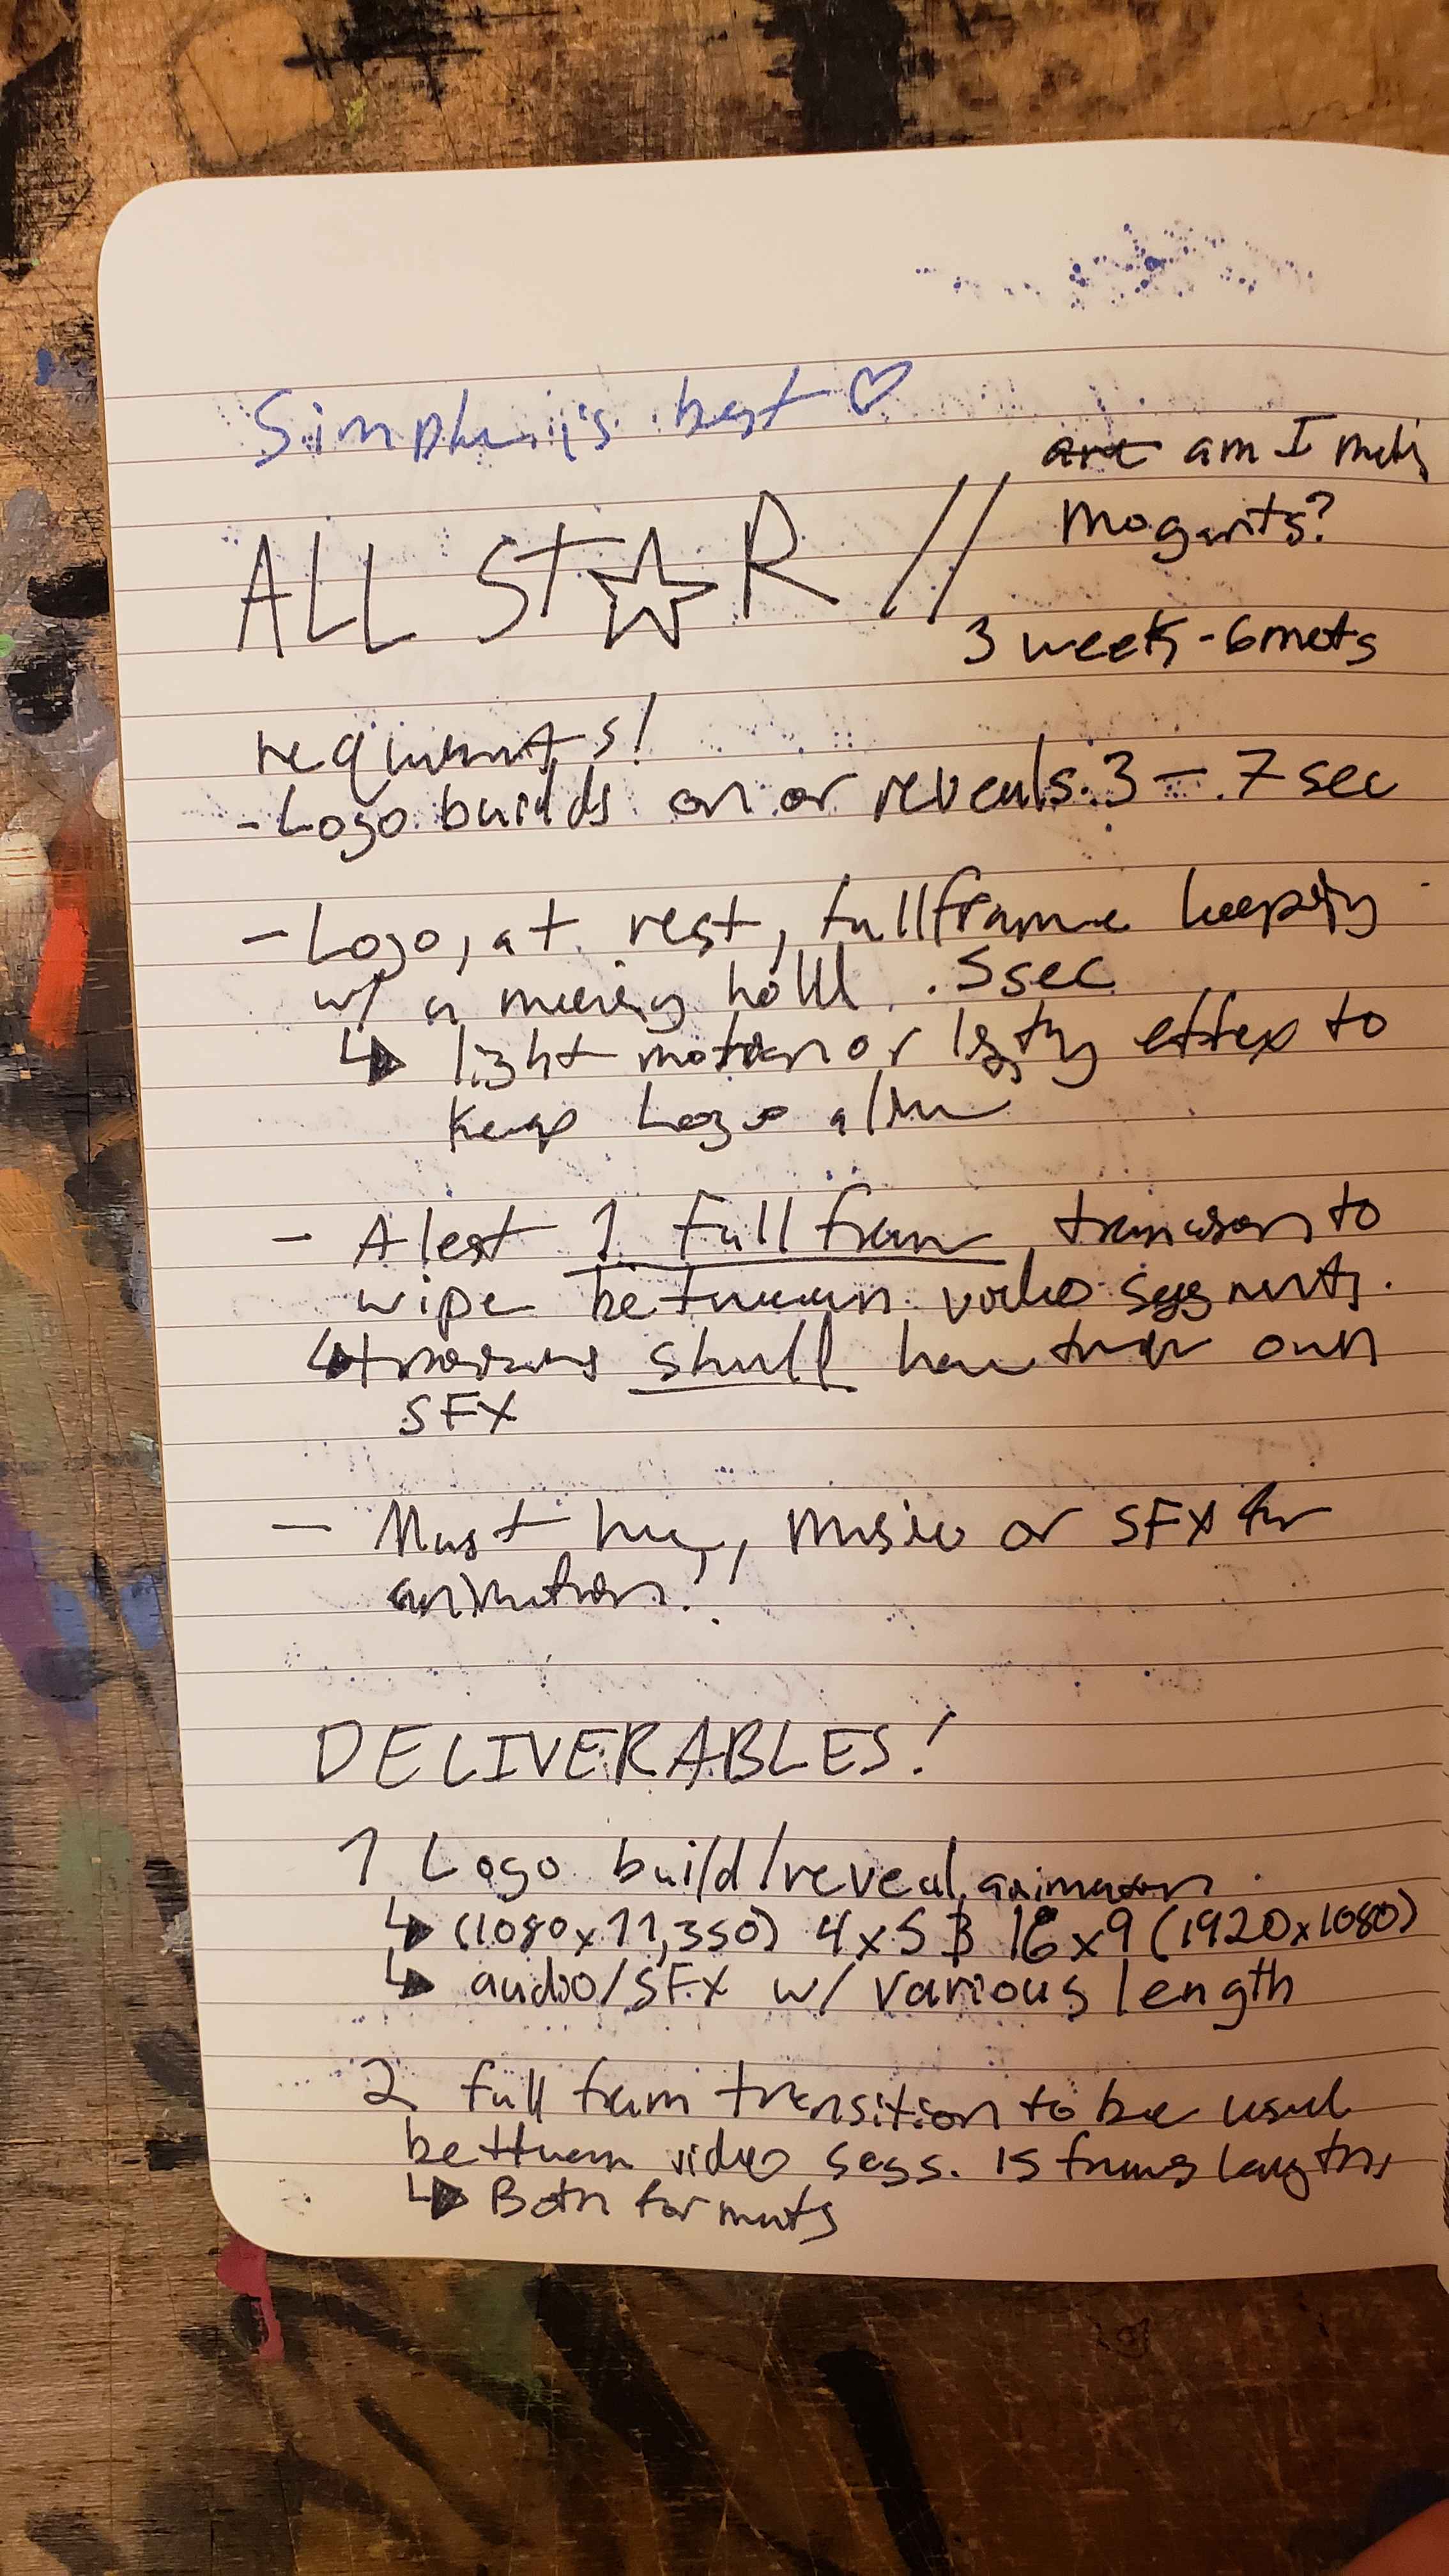 Simple is best ♡
are am I making
Mogarts?
ALL ST☆R //
3 week - 6
requirments!
- Logo builds on or reveals .3 - .7 sec
- Logo, at rest, fullframe
w/ a moving hold .5sec
↳ light motion or effex to
keep Logo alive
- Alest 1 full fram transison to
wipe between video segments.
↳ shall have their own
SFX
- Must have, Music or SFX for
animation!!
DELIVERABLES!
1 Logo build/reveal animation
↳ (1080x11,350) 4x5 & 16x9 (1920x1080)
↳ audio/SFX w/ various length
2 full fram transition to be used
between video segs. 15 frames
↳ Both formats